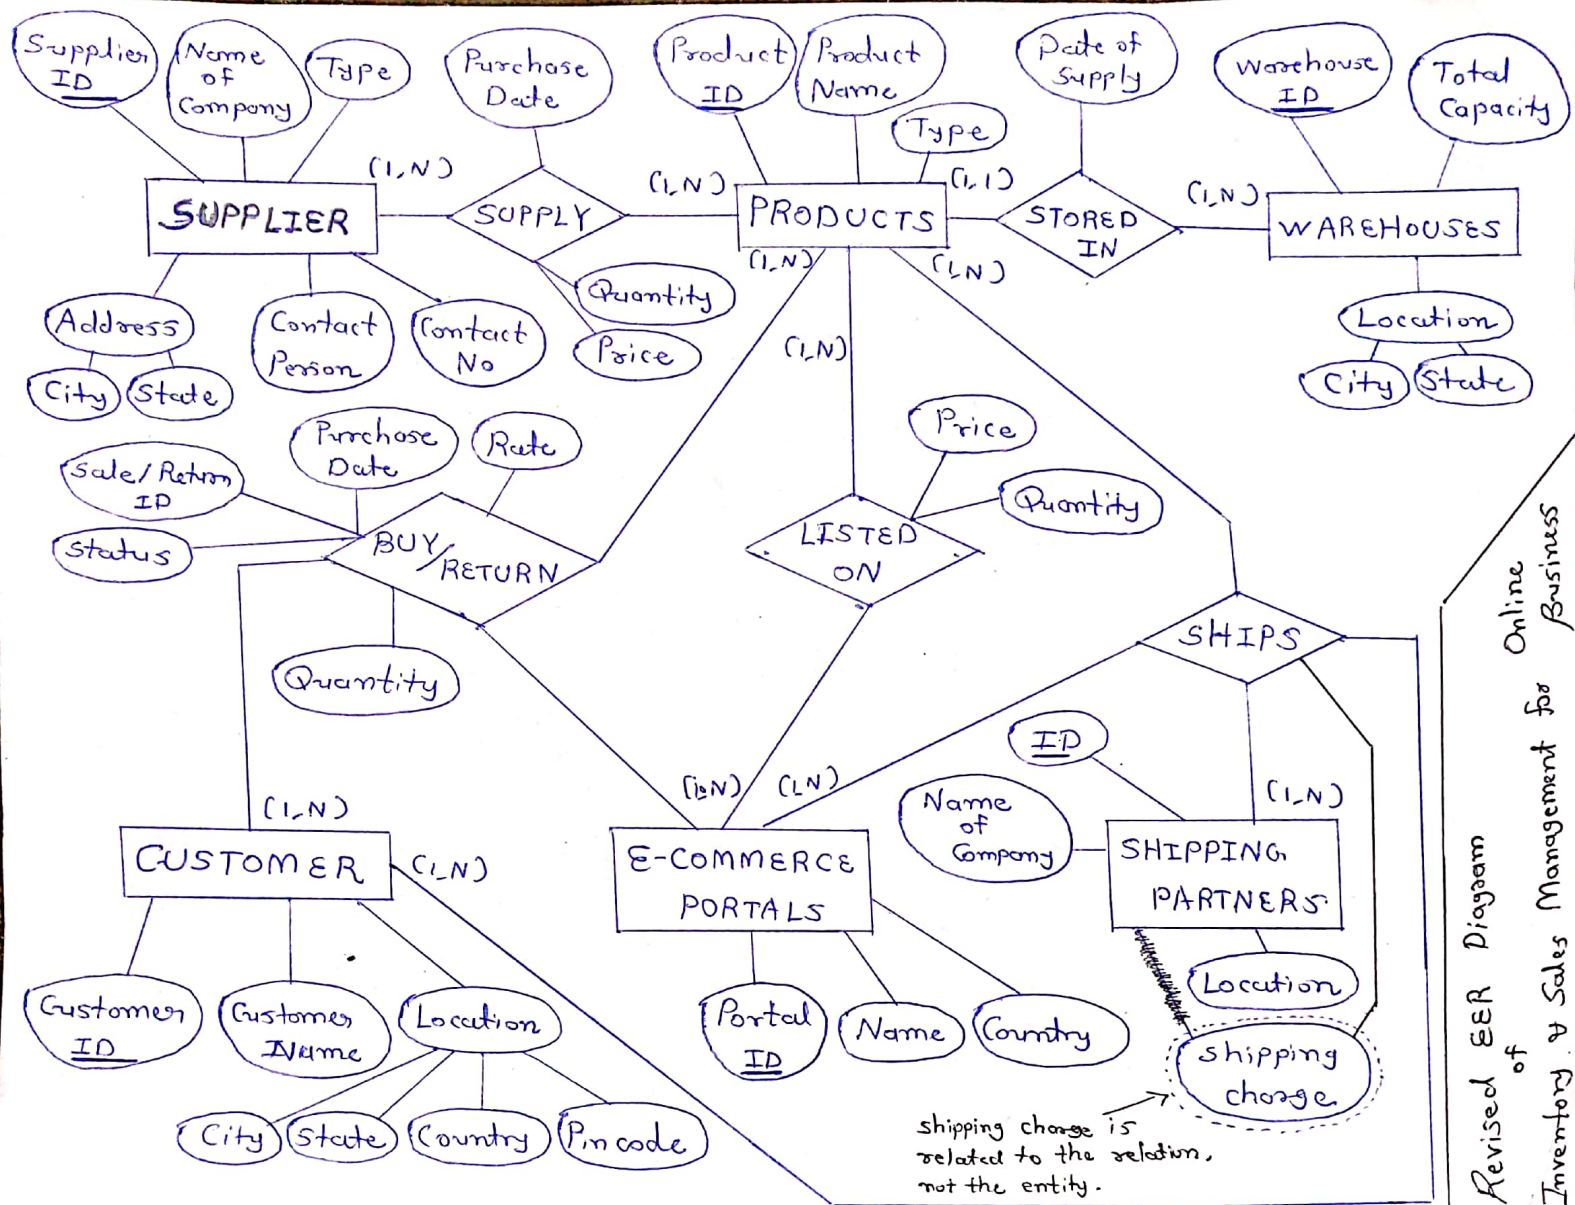 Supplier
ID
Name
of
Company
Type
Purchase
Date
Product
ID
Product
Name
Type
Date of
Supply
Warehouse
ID
Total
Capacity
(1,N)
(1,N)
(1,1)
(1,N)
SUPPLIER
SUPPLY
PRODUCTS
STORED
IN
WAREHOUSES
(1,N)
(1,N)
(1,N)
Address
City
State
Contact
Person
Contact
No
Quantity
Price
Location
City
State
Purchase
Date
Rate
Sale/Return
ID
Status
BUY/
RETURN
Quantity
Price
Quantity
LISTED
ON
SHIPS
ID
Name
of
Company
(1,N)
(1,N)
(1,N)
(1,N)
(1,N)
CUSTOMER
E-COMMERCE
PORTALS
SHIPPING
PARTNERS
Customer
ID
Customer
Name
Location
City
State
Country
Pincode
Portal
ID
Name
Country
Location
Shipping
charge
Shipping charge is
related to the relation,
not the entity.
Revised EER Diagram
of
Inventory & Sales Management for Online
Business